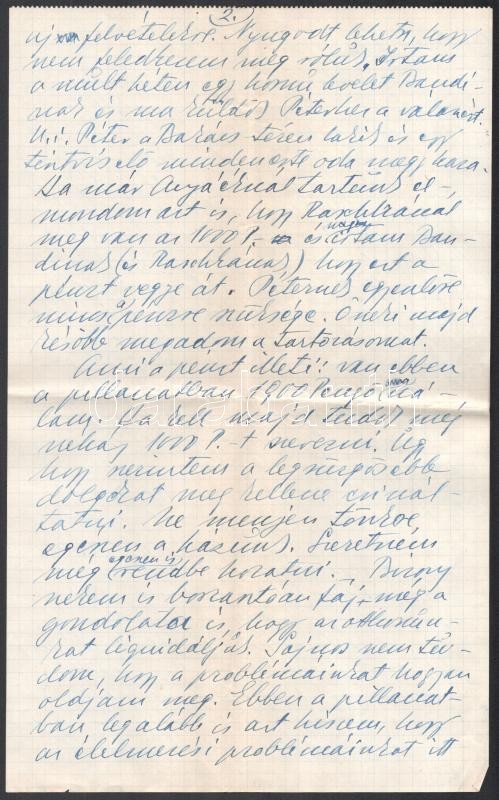 2.
új felvételekre. Nyugodt lehetsz, hogy
nem feledkezem meg rólunk. Írtam
a múlt héten egy hosszú levelet Dandi-
nak és ma küldök Péternek a válaszért.
U.i. Péter a Barács téren lakik és egy
tisztviselő minden este oda megy haza.
Ha már Anyáéknál tartunk el-
mondom azt is, hogy Raschkánál
meg van az 1000 P. és írtam Dan-
dinak (és Raschkának) hogy ezt a
pénzt vegye át. Péternek egyenlőre
nincs a pénzre szüksége. Ő neki majd
később megadom a tartozásomat.
Ami a pénzt illeti: van ebben
a pillanatban 1900 Pengőm ná-
lam. Ha kell majd tudok még
néhány 1000 P.-t szerezni. Úgy
hogy szerintem a legsürgősebb
dolgokat meg kellene csinál-
tatni. Ne menjen tönkre
egészen a házunk. Szeretném
meg egészen is rendbe hozatni. - Bizony
nekem is borzasztóan fáj még a
gondolata is, hogy az otthonun-
kat likvidáljuk. Sajnos nem tu-
dom, hogy a problémáinkat hogyan
oldjam meg. Ebben a pillanat-
ban legalább is azt hiszem, hogy
az élelmezési problémáinkat itt